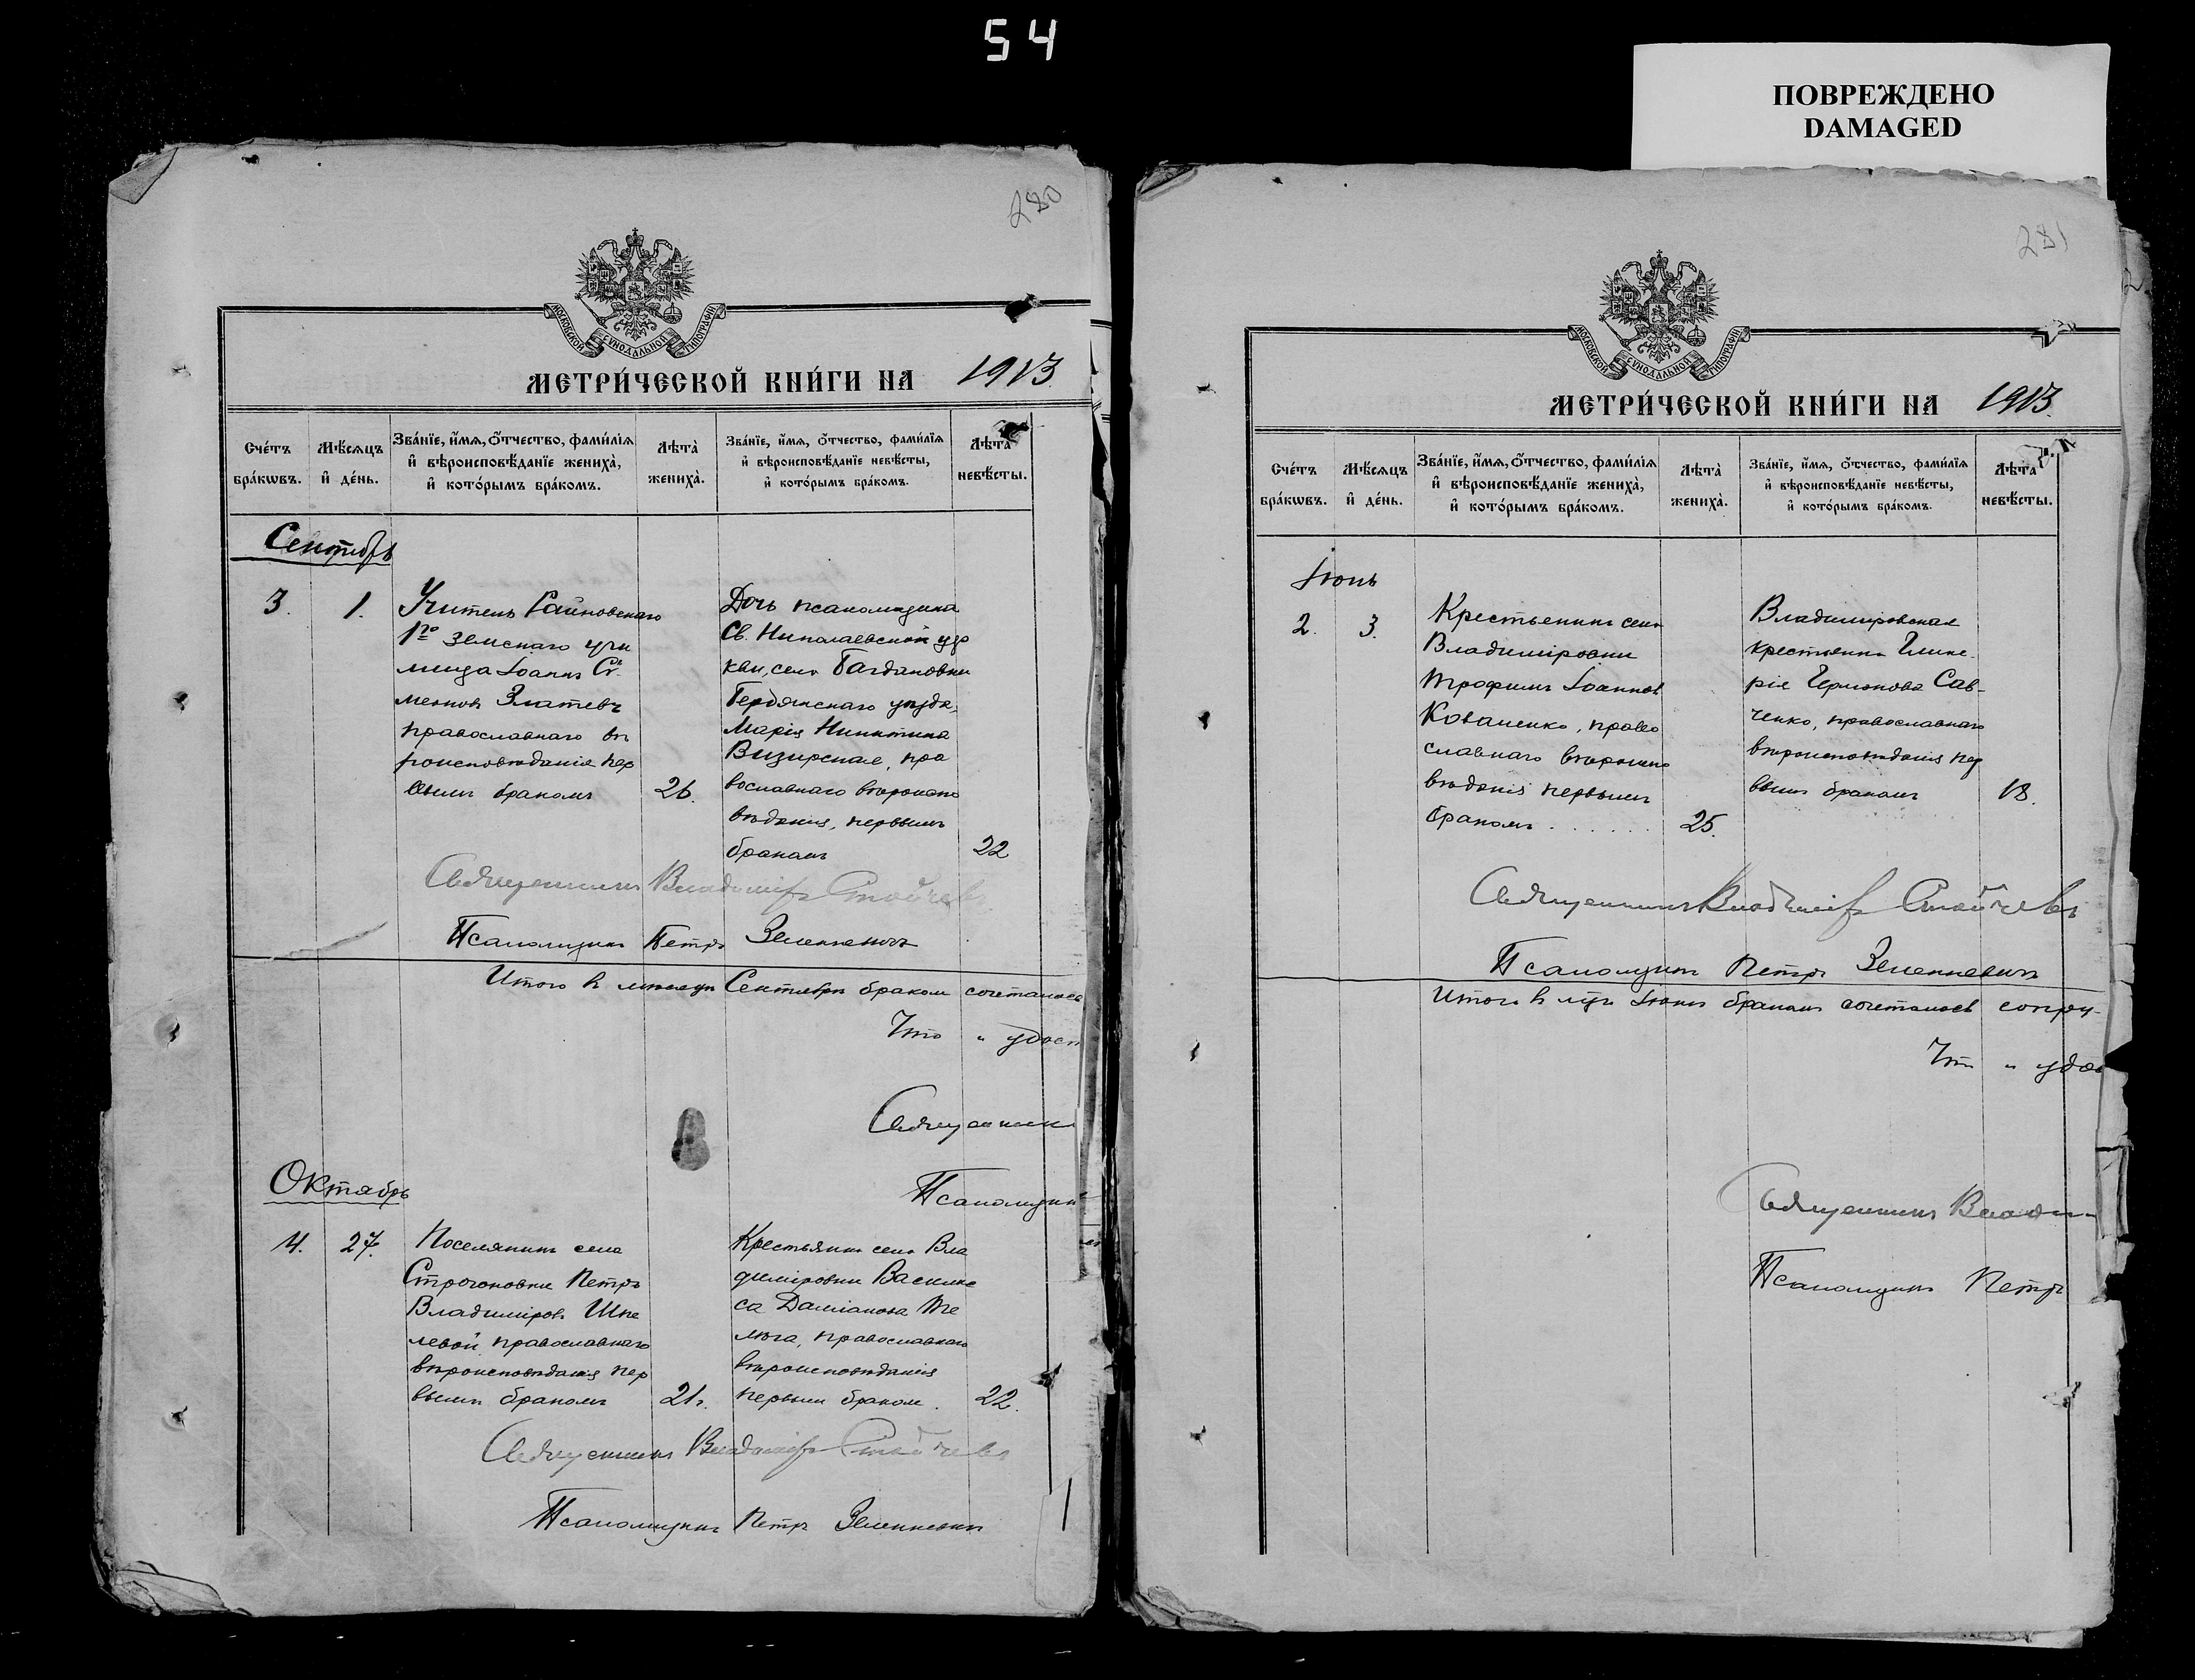 54
ПОВРЕЖДЕНО
DAMAGED
280
МОСКОВСКОЙ СУНОДАЛЬНОЙ ТИПОГРАФІИ
МЕТРИ́ЧЕСКОЙ КНИ́ГИ НА 1913.
Сче́тъ бра́кѡвъ.
Мѣ́сѧцъ и҆ де́нь.
Зва́нїе, и҆́мѧ, ѻ҆́тчество, фами́лїѧ
и҆ вѣроисповѣ́данїе жениха̀,
и҆ кото́рымъ бра́комъ.
Лѣта̀ жениха̀.
Зва́нїе, и҆́мѧ, ѻ҆́тчество, фами́лїѧ
и҆ вѣроисповѣ́данїе невѣ́сты,
и҆ кото́рымъ бра́комъ.
Лѣта̀ невѣ́сты.
Сентябрь
3. 1.
Учитель Райновскаго
1го земскаго учи
лища Іоаннъ Си
меоновъ Златевъ
православнаго вѣ
роисповѣданія пер
вымъ бракомъ 26.
Дочь псаломщика
Св. Николаевской цер
кви, села Богдановки
Бердянскаго уѣзда,
Марія Никитина
Визирская, пра
вославнаго вѣроиспо
вѣданія, первымъ
бракомъ 22
Священникъ Владиміръ Стойчевъ
Псаломщикъ Петръ Зеленкевичъ
Итого въ мѣсяцѣ Сентябрѣ бракомъ сочеталось
Что " удост
Священник
Псаломщикъ
Октябрь
4. 27.
Поселянинъ села
Строгоновки Петръ
Владиміровъ
левой православнаго
вѣроисповѣданія пер
вымъ бракомъ 21.
Крестьянка села Вла
диміровки Василис
са Даміанова Те
люга, православнаго
вѣроисповѣданія
первымъ бракомъ. 22.
Священникъ Владиміръ Стойчевъ
Псаломщикъ Петръ Зеленкевичъ
281
МОСКОВСКОЙ СУНОДАЛЬНОЙ ТИПОГРАФІИ
МЕТРИ́ЧЕСКОЙ КНИ́ГИ НА 1913.
Сче́тъ бра́кѡвъ.
Мѣ́сѧцъ и҆ де́нь.
Зва́нїе, и҆́мѧ, ѻ҆́тчество, фами́лїѧ
и҆ вѣроисповѣ́данїе жениха̀,
и҆ кото́рымъ бра́комъ.
Лѣта̀ жениха̀.
Зва́нїе, и҆́мѧ, ѻ҆́тчество, фами́лїѧ
и҆ вѣроисповѣ́данїе невѣ́сты,
и҆ кото́рымъ бра́комъ.
Лѣта̀ невѣ́сты.
Іюнь
2. 3.
Крестьянинъ села
Владиміровки
Трофимъ Іоанновъ
Коваленко, право
славнаго вѣроиспо
вѣданія первымъ
бракомъ . . . . . . 25.
Владиміровская
крестьянка Глике-
рія Сав-
ченко, православнаго
вѣроисповѣданія пер
вымъ бракомъ 18.
Священникъ Владиміръ Стойчевъ
Псаломщикъ Петръ Зеленкевичъ
Итого въ м-цѣ Іюнѣ бракомъ сочеталось супру-
Что " удос
Священникъ Влади
Псаломщикъ Петръ